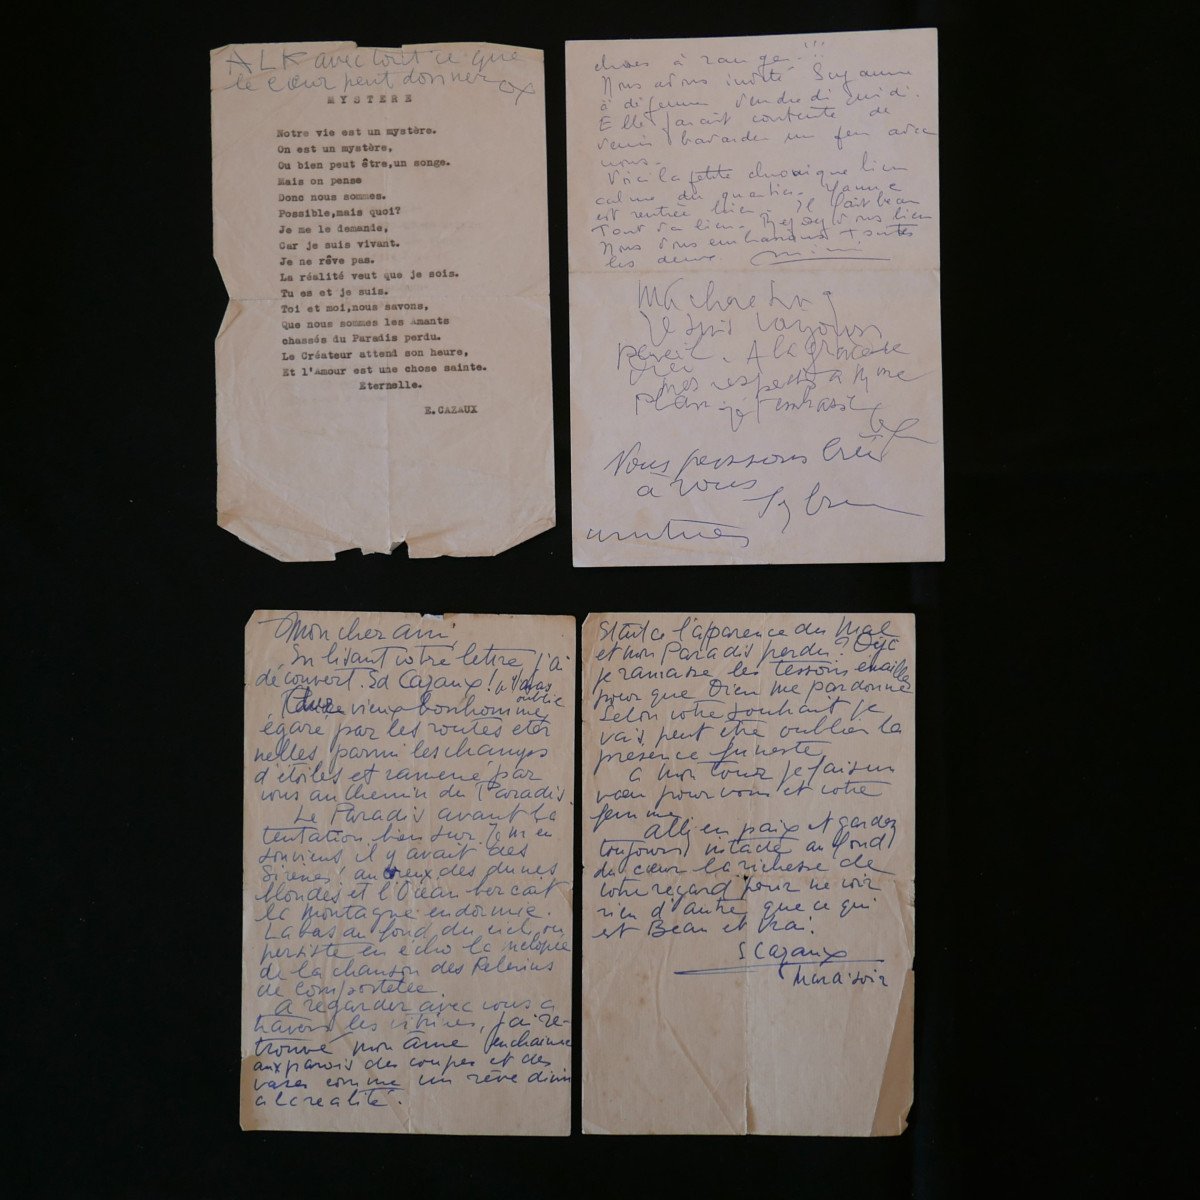 ALK avec tout ce que
le cœur peut donner
MYSTERE
Notre vie est un mystère.
On est un mystère,
Ou bien peut être,un songe.
Mais on pense
Donc nous sommes.
Possible,mais quoi?
Je me le demande,
Car je suis vivant.
Je ne rêve pas.
La réalité veut que je sois.
Tu es et je suis.
Toi et moi,nous savons,
Que nous sommes les Amants
chassés du Paradis perdu.
Le Créateur attend son heure,
Et l'Amour est une chose sainte.
Eternelle.
E.CAZAUX
choses à ranger !!!
Nous avons invité Suzanne
à déjeuner vendredi midi.
Elle parait contente de
venir bavarder un peu avec
nous.
Voici la petite chronique bien
calme du quartier.
est rentrée hier. Il fait beau
Tout va bien. bien
Nous vous embrassons toutes
les deux. Mimi
Ma chere
Je suis toujours
pareil. A la grace de
Dieu
mes respects à Mme
je t'embrasse
Nous pensons bien
à vous
Mon cher ami,
En lisant votre lettre j'ai
découvert. Ed Cazaux !
vieux bonhomme oublié
égaré par les routes éter
nelles parmi les champs
d'étoiles et ramené par
vous au chemin du Paradis.
Le Paradis avant la
tentation bien sur. Je m'en
souviens il y avait des
Sirènes ! au creux des dunes
blondes et l'Océan berçait
la montagne endormie.
La bas au fond du ciel, ou
persiste en écho la mélopée
de la chanson des Pelerins
de Compostelle
A regarder avec vous a
travers les vitrines, j'ai re-
trouvé mon âme enchainée
aux parois des coupes et des
vases comme un rêve divin
a la realité.
Etait ce l'apparence du Mal
et mon Paradis perdu ? Déjà
je ramasse les tessons emaillés
pour que Dieu me pardonne
Selon votre souhait je
vais peut etre oublier la
présence funeste
A mon tour je fais un
vœu pour vous et votre
femme
Allez en paix et gardez
toujours intacte au fond
du cœur la richesse de
votre regard pour ne voir
rien d'autre que ce qui
est Beau et Vrai.
E Cazaux